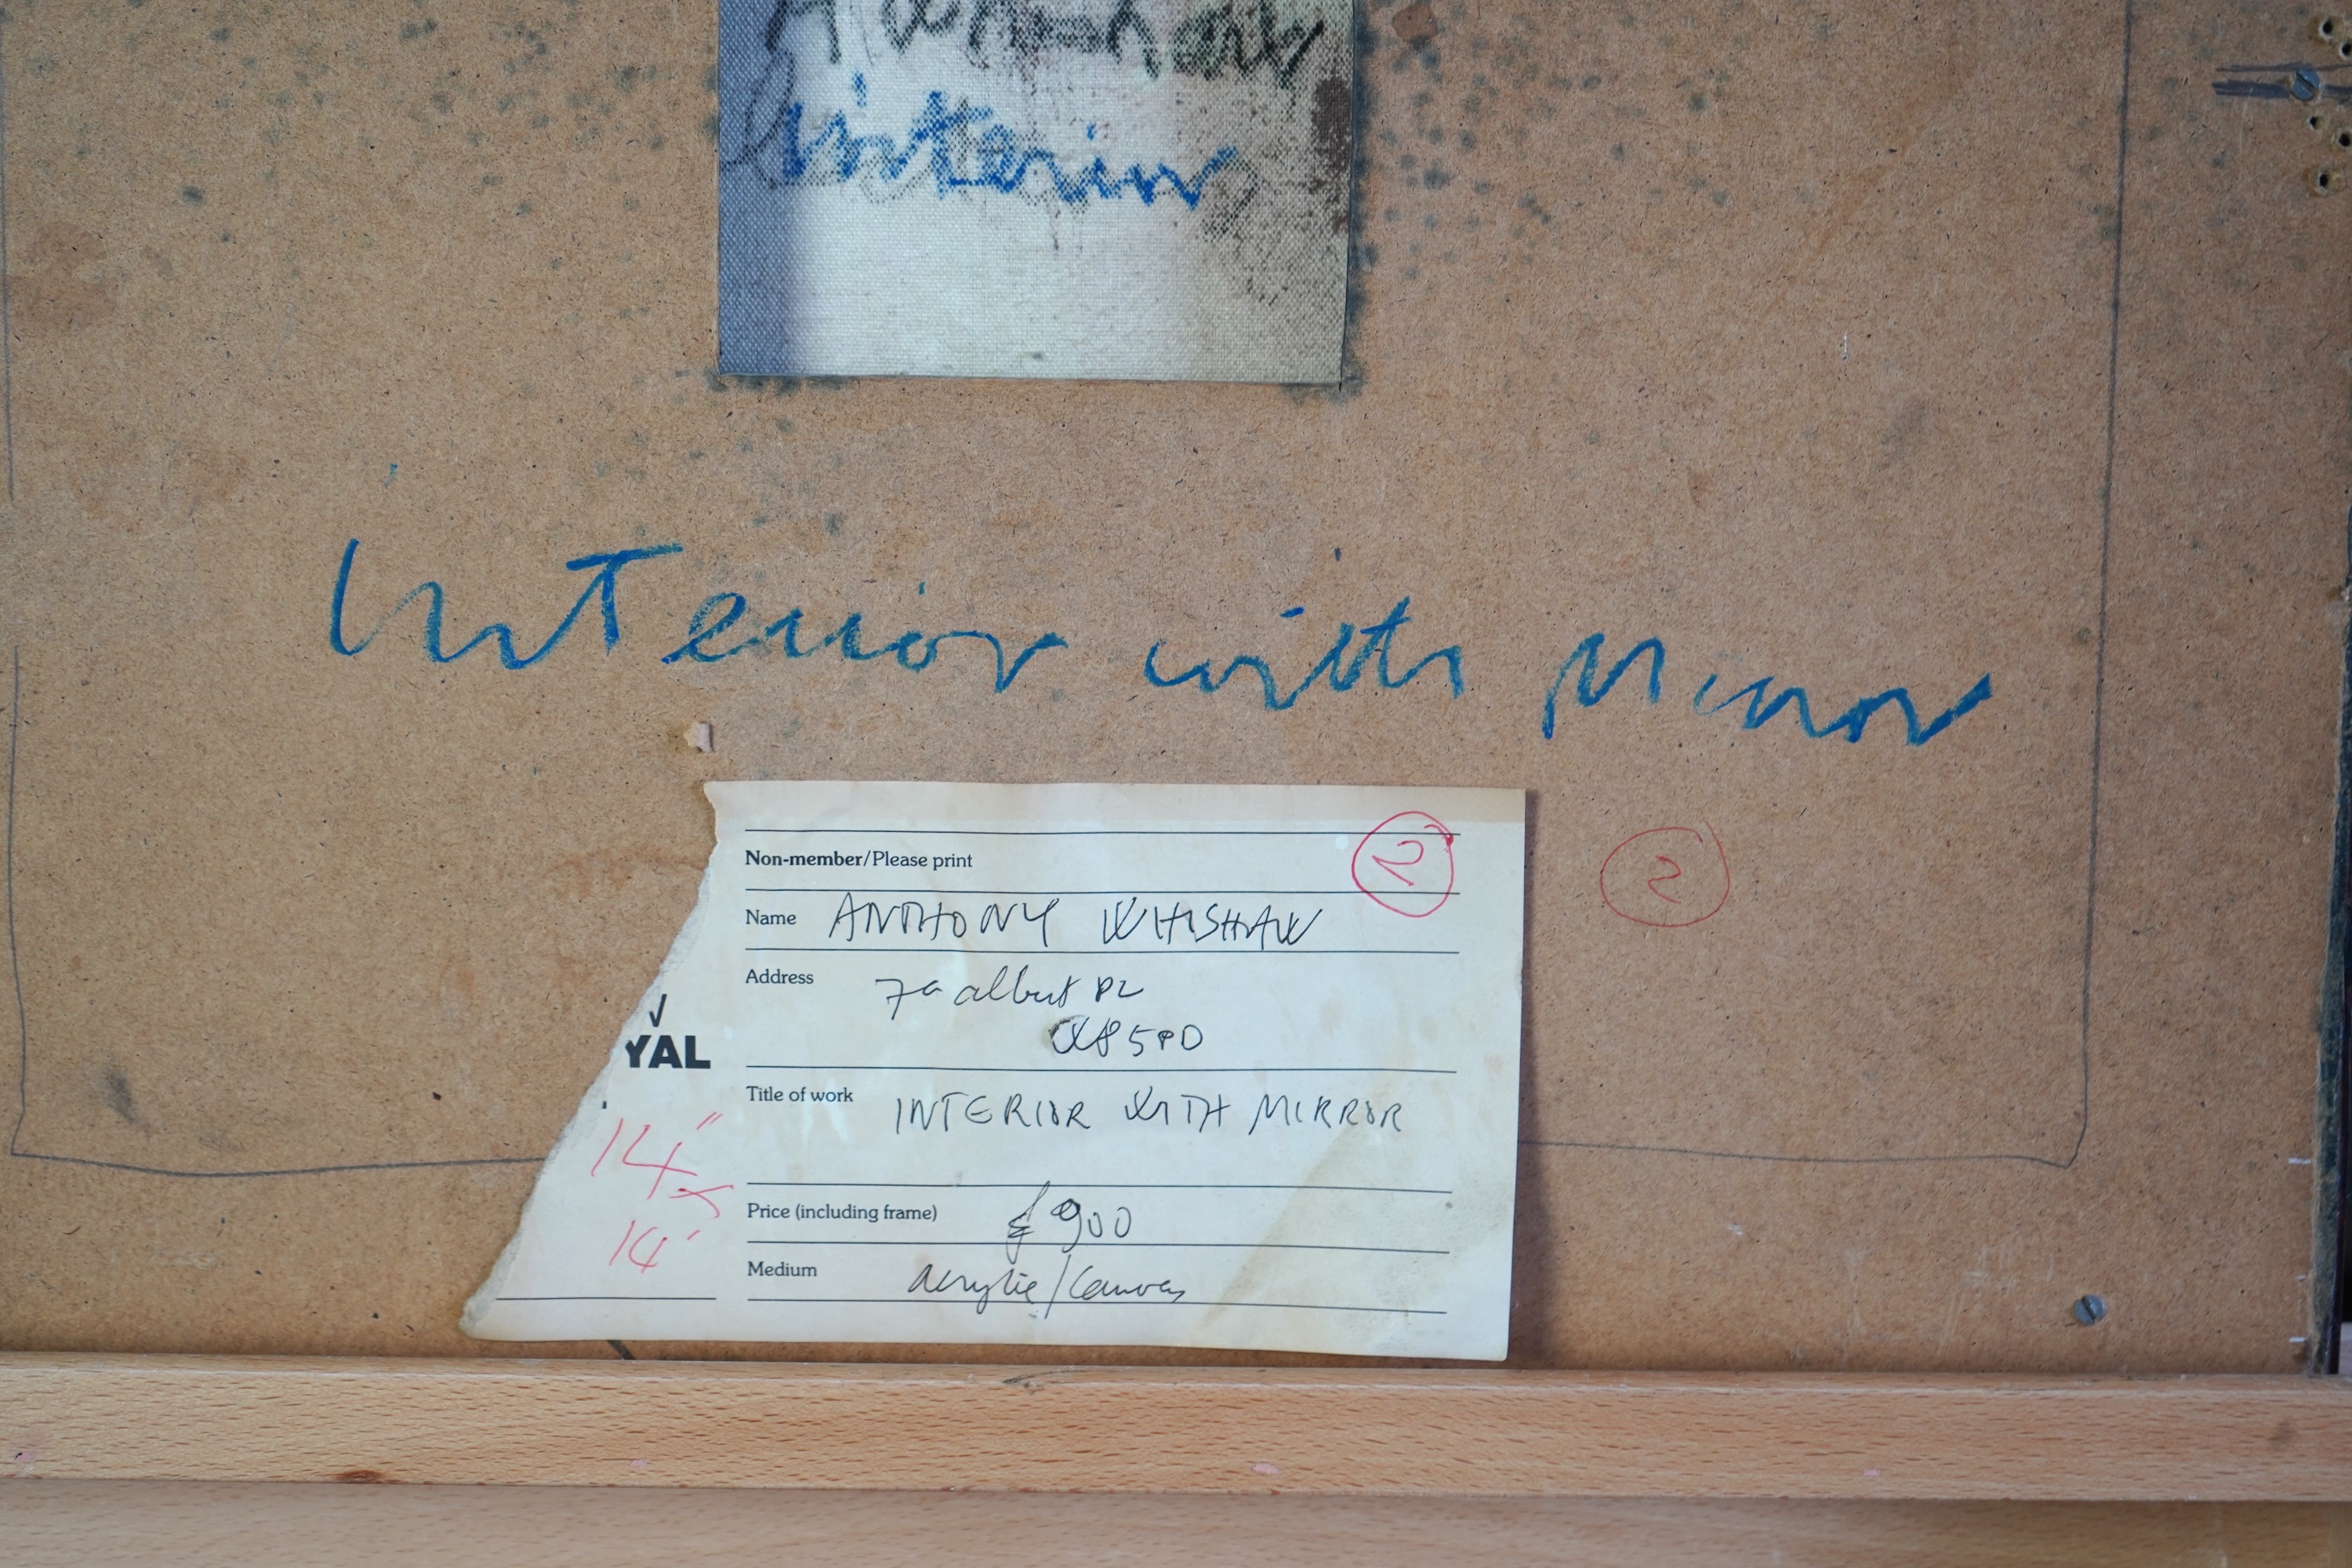 Interior
Interior with Mirror
Non-member/Please print
2
2
Name ANTHONY WHISHAW
Address 7a albert PL
W8 5PD
YAL
Title of work INTERIOR WITH MIRROR
14"
x
14"
Price (including frame) £ 900
Medium acrylic/Canvas